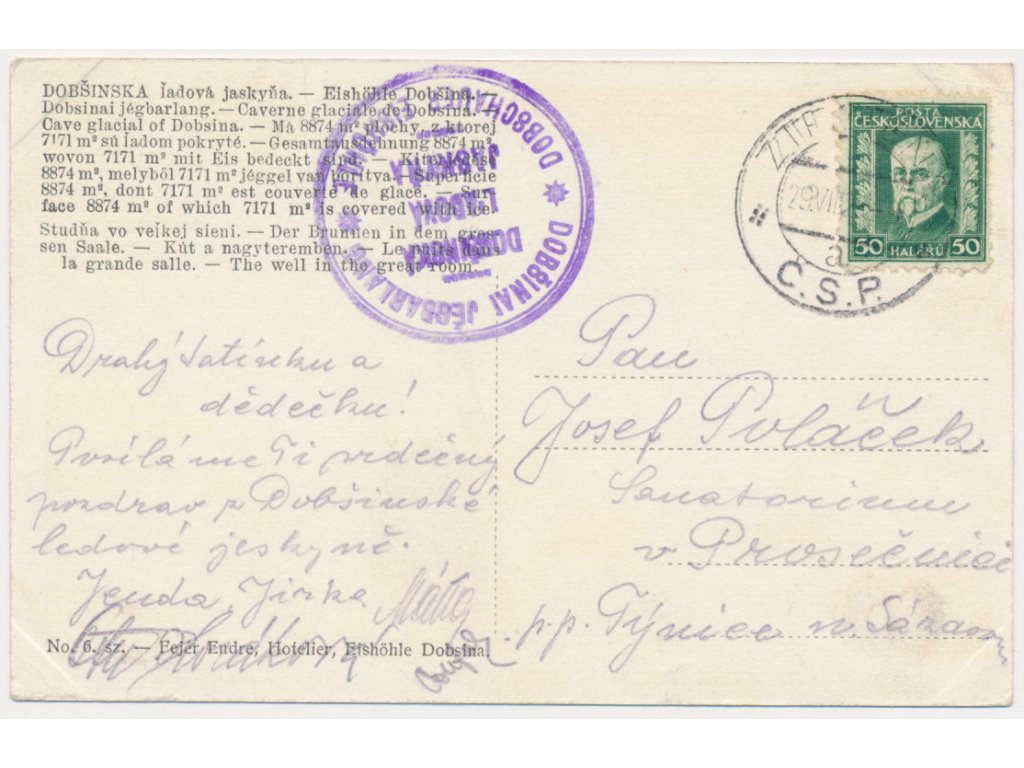 DOBŠINSKA ľadová jaskyňa. — Eishöhle Dobšina. —
Dobsinai jégbarlang. — Caverne glaciale de Dobsina. —
Cave glacial of Dobsina. — Má 8874 m² plochy, z ktorej
7171 m² sú ladom pokryté. — Gesamtausdehnung 8874 m²,
wovon 7171 m² mit Eis bedeckt sind. — Kiterjedése
8874 m², melyből 7171 m² jéggel van borítva. — Superficie
8874 m², dont 7171 m² est couverte de glace. — Sur-
face 8874 m² of which 7171 m² is covered with ice.
Studňa vo veľkej sieni. — Der Brunnen in dem gros-
sen Saale. — Kút a nagyteremben. — Le puits dans
la grande salle. — The well in the great room.
DOBŠINAI JÉGBARLANG
DOBSCHAUER
POŠTA
ČESKOSLOVENSKÁ
50 HALÉŘŮ 50
29.VII
a
Č.S.P.
Drahý tatínku a
dědečku!
Posíláme Ti srdečný
pozdrav z Dobšinské
ledové jeskyně.
Jenda, Jirka
No. 6. sz. — Fejér Endre, Hotelier, Eishöhle Dobsina.
Pan
Josef Poláček
Sanatorium
v Prosečnici
p.p. Týnec n. Sázavou